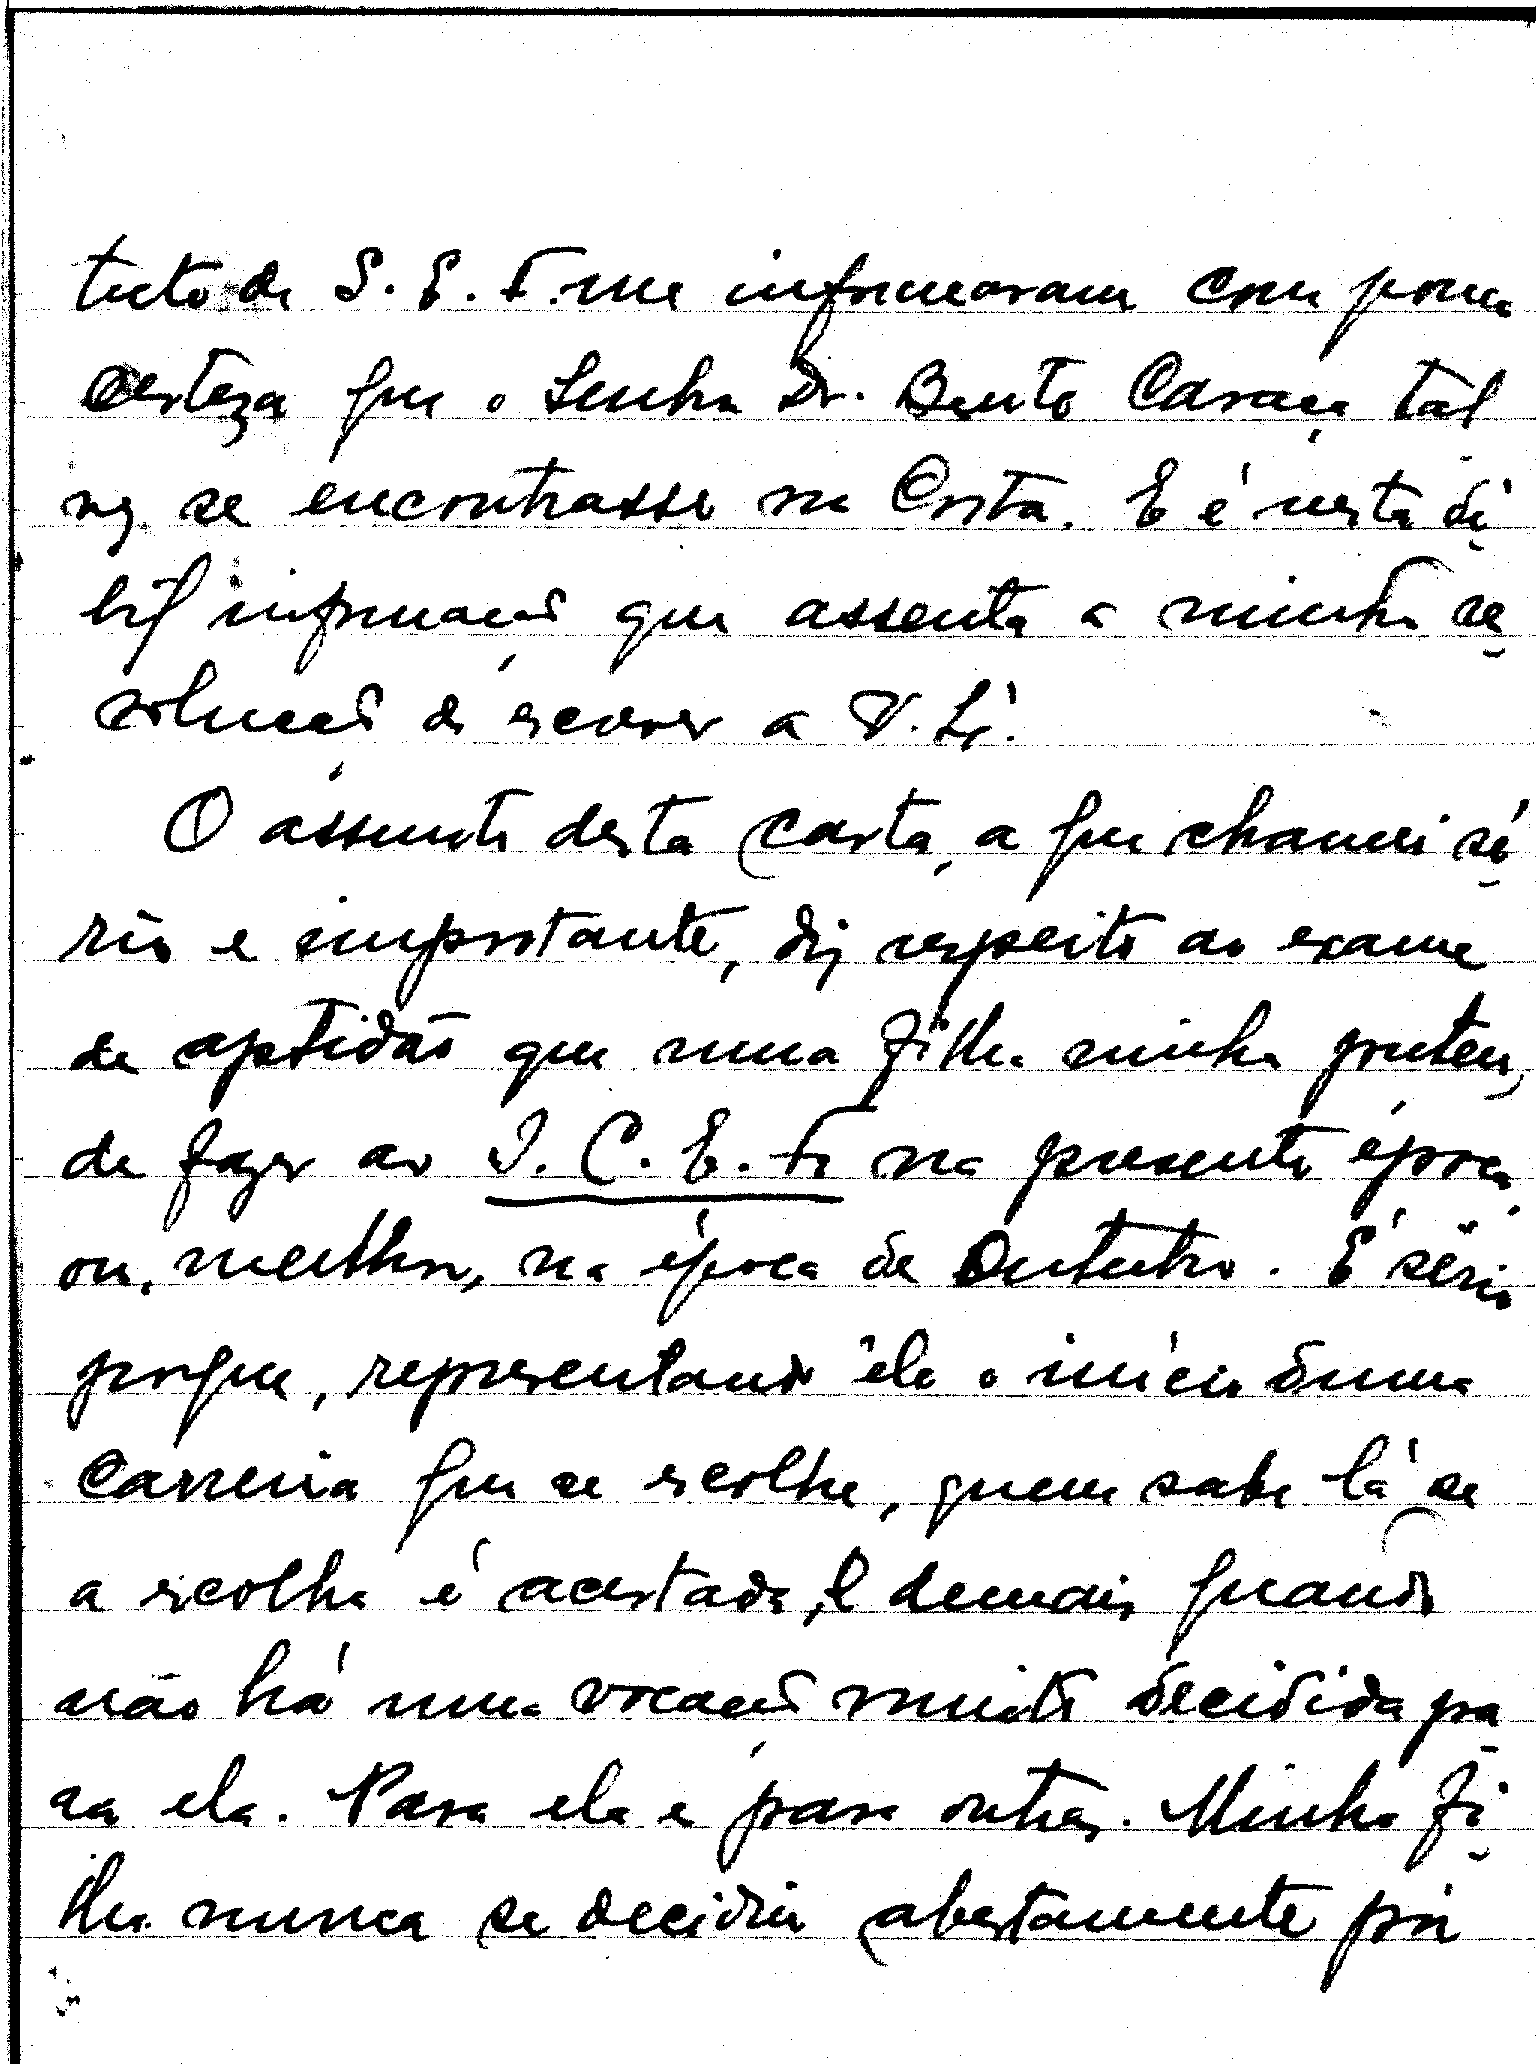 tuto de S. E. F. me informaram com pouca
certeza que o Senhor Dr. Bento Caraça tal
vez se encontrasse na Costa. E é nesta dé
bil informação que assenta a minha re
solução de escrever a V. Sª.
O assunto desta carta, a que chamei sé
rio e importante, diz respeito ao exame
de aptidão que uma filha minha preten,
de fazer ao I. C. E. F. na presente época,
ou, melhor, na época de Outubro. É sério
porque, representando êle o início duma
carreira que se escolhe, quem sabe lá se
a escolha é acertada, e demais quando
não há uma vocação muito decidida pa
ra ela. Para ela e para outras. Minha fi
lha nunca se decidiu abertamente por